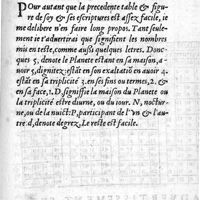 Pour autant que la precedente table & figu-
re de soy & ses escriptures est assez facile, ie
me delibere n'en faire long propos. Tant seule-
ment ie t'aduertiray que signifient les nombres
mis en teste, comme aussi quelques letres. Donc-
ques 5, denote le Planete estant en sa maison, a-
uoir 5, dignitez: estāt en son exaltatiō en auoir 4.
estāt en sa triplicité 3. en ses fins ou termes, 2. &
en sa face, 1. D, signifie la maison du Planete ou
la triplicité estre diurne, ou du iour. N, noctur-
ne, ou de la nuict: P, participant de l'vn & l'au-
tre: d, denote degrez, Le reste est facile.